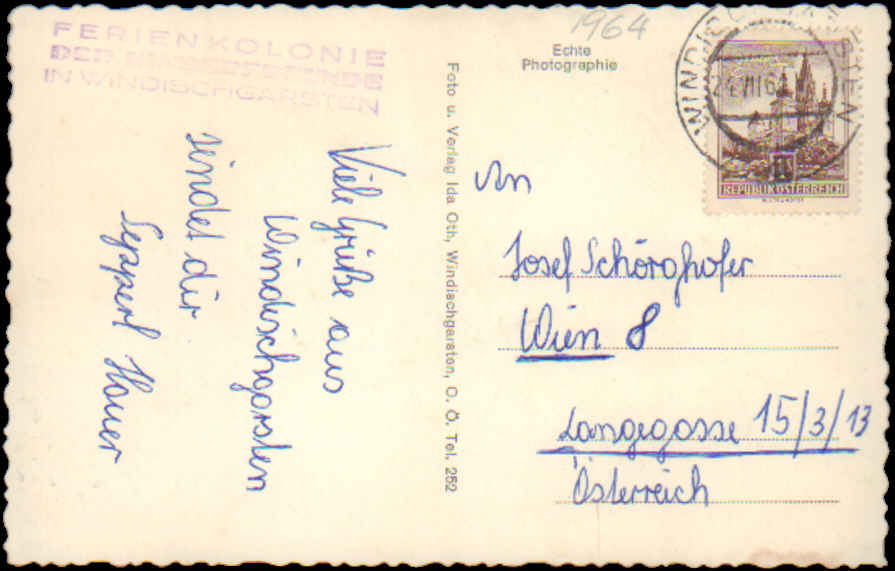 FERIENKOLONIE
DER KINDERFREUNDE
IN WINDISCHGARSTEN
Viele Grüße aus
Windischgarsten
sendet dir
Sepperl Hauer
Foto u. Verlag Ida Oth, Windischgarsten, O. Ö. Tel. 252
1964
Echte
Photographie
WINDISCHGARSTEN
REPUBLIK ÖSTERREICH
An
Josef Schörghofer
Wien 8
Langegasse 15/3/13
Österreich